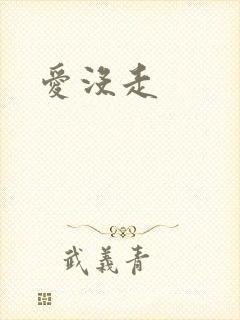 愛沒走
武義青